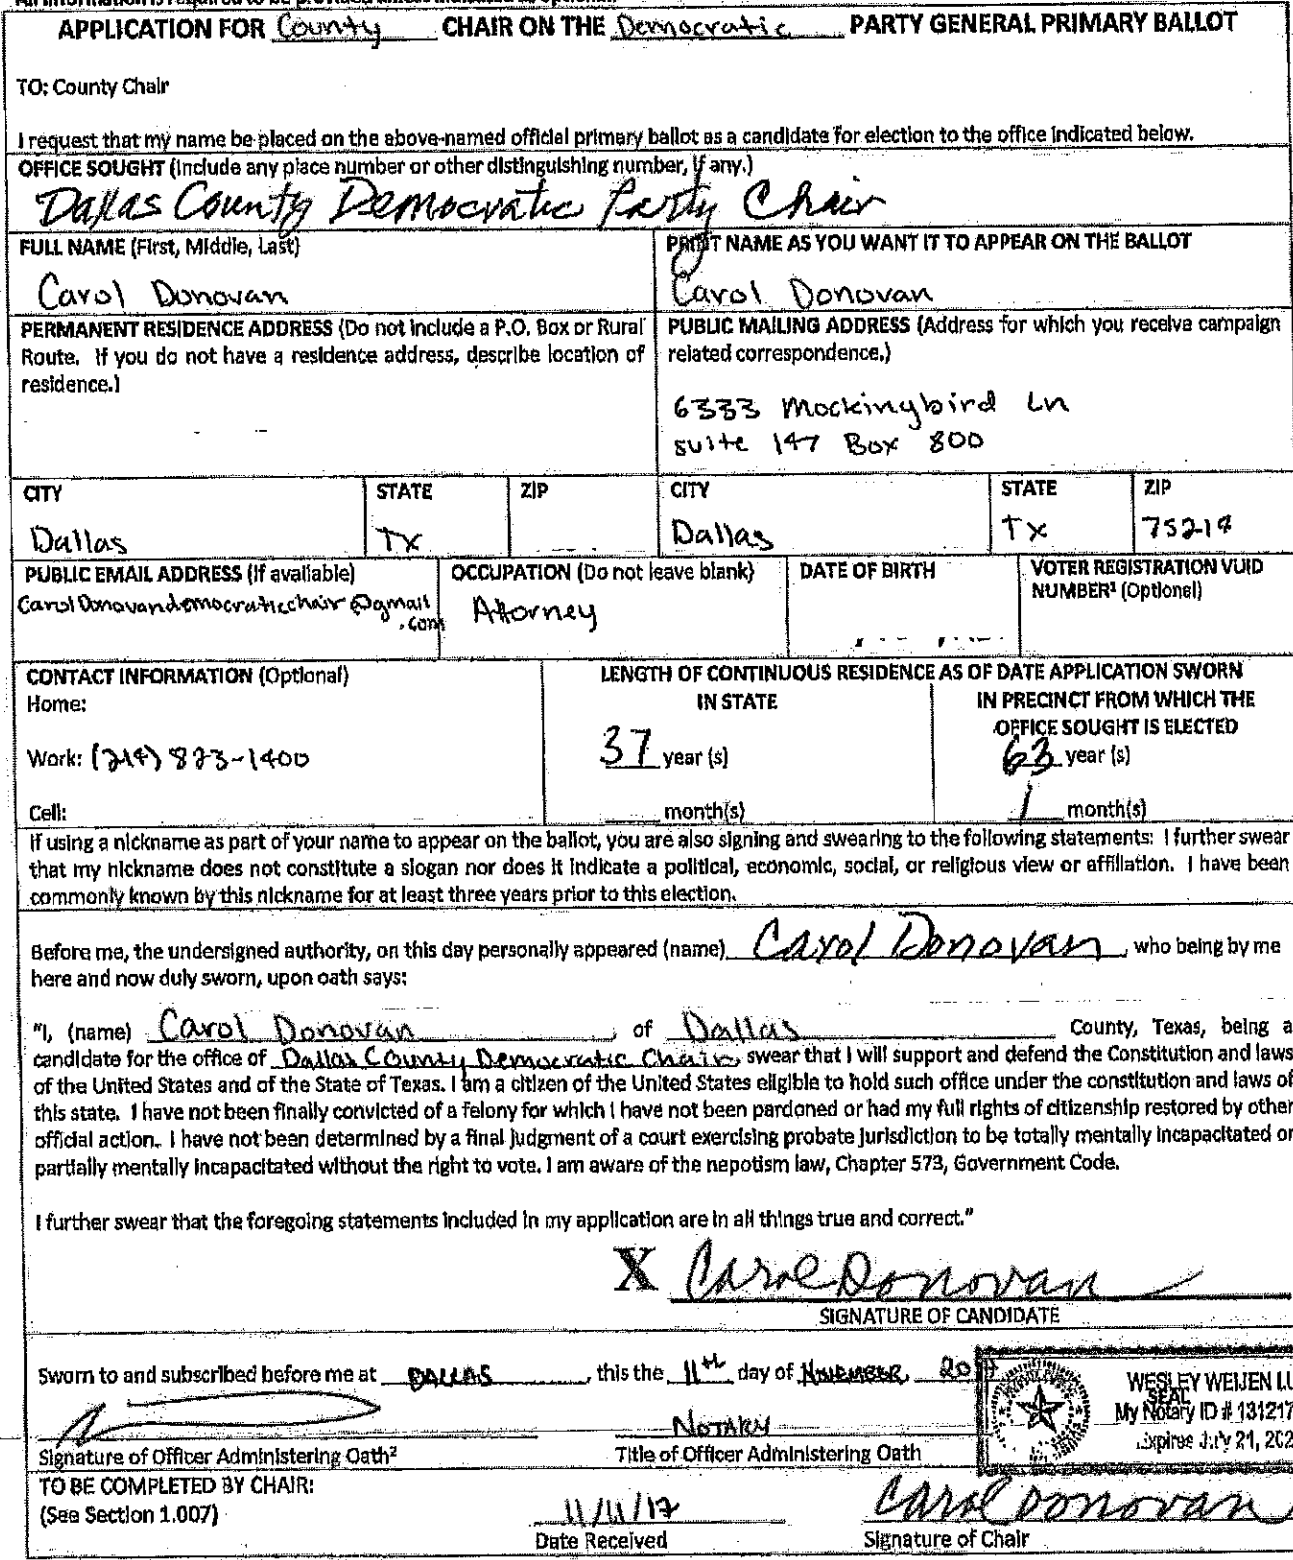 APPLICATION FOR County CHAIR ON THE Democratic PARTY GENERAL PRIMARY BALLOT
TO: County Chair
I request that my name be placed on the above-named official primary ballot as a candidate for election to the office indicated below.
OFFICE SOUGHT (Include any place number or other distinguishing number, if any.)
Dallas County Democratic Party Chair
FULL NAME (First, Middle, Last)
Carol Donovan
PRINT NAME AS YOU WANT IT TO APPEAR ON THE BALLOT
Carol Donovan
PERMANENT RESIDENCE ADDRESS (Do not include a P.O. Box or Rural
Route. If you do not have a residence address, describe location of
residence.)
PUBLIC MAILING ADDRESS (Address for which you receive campaign
related correspondence.)
6333 Mockingbird Ln
suite 147 Box 800
CITY
Dallas
STATE
TX
ZIP
CITY
Dallas
STATE
TX
ZIP
75214
PUBLIC EMAIL ADDRESS (If available)
CarolDonovandemocraticchair@gmail
.com
OCCUPATION (Do not leave blank)
Attorney
DATE OF BIRTH
VOTER REGISTRATION VUID
NUMBER¹ (Optional)
CONTACT INFORMATION (Optional)
Home:
Work: (214) 823-1400
Cell:
LENGTH OF CONTINUOUS RESIDENCE AS OF DATE APPLICATION SWORN
IN STATE
37 year (s)
month(s)
IN PRECINCT FROM WHICH THE
OFFICE SOUGHT IS ELECTED
63 year (s)
1 month(s)
If using a nickname as part of your name to appear on the ballot, you are also signing and swearing to the following statements: I further swear
that my nickname does not constitute a slogan nor does it indicate a political, economic, social, or religious view or affiliation. I have been
commonly known by this nickname for at least three years prior to this election.
Before me, the undersigned authority, on this day personally appeared (name) Carol Donovan, who being by me
here and now duly sworn, upon oath says:
"I, (name) Carol Donovan, of Dallas County, Texas, being a
candidate for the office of Dallas County Democratic Chair, swear that I will support and defend the Constitution and laws
of the United States and of the State of Texas. I am a citizen of the United States eligible to hold such office under the constitution and laws of
this state. I have not been finally convicted of a felony for which I have not been pardoned or had my full rights of citizenship restored by other
official action. I have not been determined by a final judgment of a court exercising probate jurisdiction to be totally mentally incapacitated or
partially mentally incapacitated without the right to vote. I am aware of the nepotism law, Chapter 573, Government Code.
I further swear that the foregoing statements included in my application are in all things true and correct."
X Carol Donovan
SIGNATURE OF CANDIDATE
Sworn to and subscribed before me at DALLAS, this the 11th day of NOVEMBER, 20
WESLEY WEIJEN LU
SEAL
My Notary ID # 131217
Expires July 21, 202
NOTARY
Signature of Officer Administering Oath²
Title of Officer Administering Oath
TO BE COMPLETED BY CHAIR:
(See Section 1.007)
11/11/17
Date Received
Carol Donovan
Signature of Chair